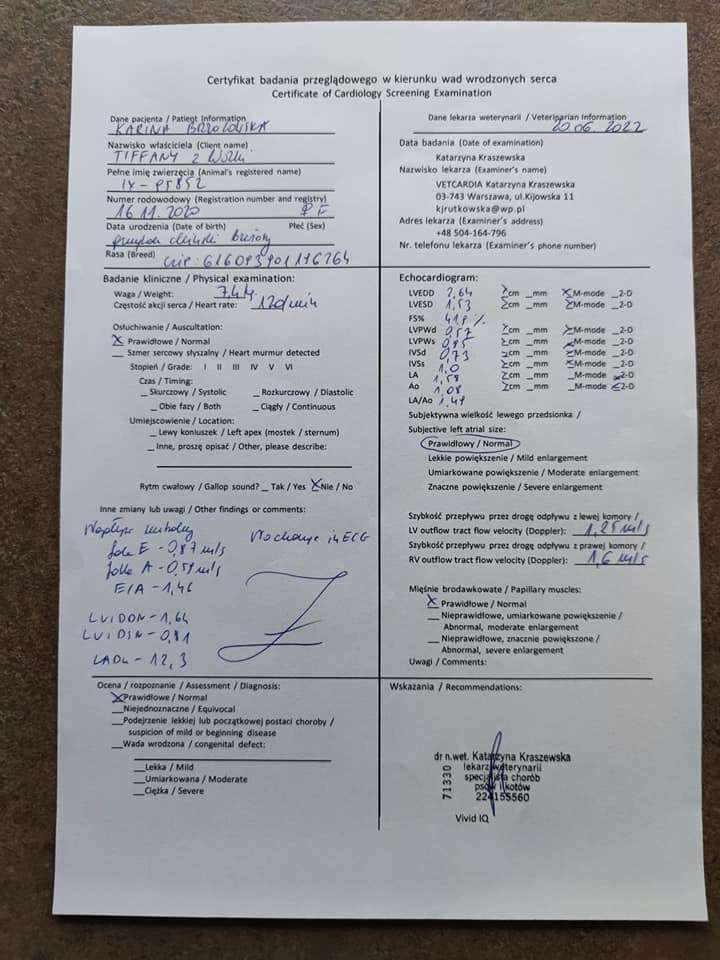 Certyfikat badania przeglądowego w kierunku wad wrodzonych serca
Certificate of Cardiology Screening Examination
Dane pacjenta / Patient Information
KARINA BRZOZOWSKA
Nazwisko właściciela (Client name)
TIFFANY z
Pełne imię zwierzęcia (Animal's registered name)
IX-
Numer rodowodowy (Registration number and registry)
16 11. 2020 ♀ F
Data urodzenia (Date of birth) Płeć (Sex)
Rasa (Breed)
Dane lekarza weterynarii / Veterinarian Information
20 06. 2022
Data badania (Date of examination)
Katarzyna Kraszewska
Nazwisko lekarza (Examiner's name)
VETCARDIA Katarzyna Kraszewska
03-743 Warszawa, ul.Kijowska 11
kjrutkowska@wp.pl
Adres lekarza (Examiner's address)
+48 504-164-796
Nr. telefonu lekarza (Examiner's phone number)
Badanie kliniczne / Physical examination:
Waga / Weight:
Częstość akcji serca / Heart rate: 120/min
Osłuchiwanie / Auscultation:
X Prawidłowe / Normal
__ Szmer sercowy słyszalny / Heart murmur detected
Stopień / Grade: I II III IV V VI
Czas / Timing:
_ Skurczowy / Systolic _ Rozkurczowy / Diastolic
_ Obie fazy / Both _ Ciągły / Continuous
Umiejscowienie / Location:
_ Lewy koniuszek / Left apex (mostek / sternum)
_ Inne, proszę opisać / Other, please describe:
Rytm cwałowy / Gallop sound? _ Tak / Yes X Nie / No
Inne zmiany lub uwagi / Other findings or comments:
Napływ mitralny
fala E - 0,87 m/s
fala A - 0,59 m/s
E/A - 1,46
LVIDDN - 1,64
LVIDSN - 0,81
LADn - 12,3
W echo i w ECG
Echocardiogram:
LVEDD 2,64 X cm _ mm X M-mode _ 2-D
LVESD 1,53 X cm _ mm X M-mode _ 2-D
FS% 41,9 %
LVPWd 0,57 X cm _ mm X M-mode _ 2-D
LVPWs 0,95 X cm _ mm X M-mode _ 2-D
IVSd 0,73 X cm _ mm X M-mode _ 2-D
IVSs 1,0 X cm _ mm X M-mode _ 2-D
LA X cm _ mm _ M-mode X 2-D
Ao 1,08 X cm _ mm _ M-mode X 2-D
LA/Ao 1,47
Subjektywna wielkość lewego przedsionka /
Subjective left atrial size:
Prawidłowy / Normal
Lekkie powiększenie / Mild enlargement
Umiarkowane powiększenie / Moderate enlargement
Znaczne powiększenie / Severe enlargement
Szybkość przepływu przez drogę odpływu z lewej komory /
LV outflow tract flow velocity (Doppler): 1,25 m/s
Szybkość przepływu przez drogę odpływu z prawej komory /
RV outflow tract flow velocity (Doppler): 1,6 m/s
Mięśnie brodawkowate / Papillary muscles:
X Prawidłowe / Normal
__ Nieprawidłowe, umiarkowane powiększenie /
Abnormal, moderate enlargement
__ Nieprawidłowe, znacznie powiększone /
Abnormal, severe enlargement
Uwagi / Comments:
Ocena / rozpoznanie / Assessment / Diagnosis:
X Prawidłowe / Normal
__ Niejednoznaczne / Equivocal
__ Podejrzenie lekkiej lub początkowej postaci choroby /
suspicion of mild or beginning disease
__ Wada wrodzona / congenital defect:
__ Lekka / Mild
__ Umiarkowana / Moderate
__ Ciężka / Severe
Wskazania / Recommendations:
dr n.wet. Katarzyna Kraszewska
lekarz weterynarii
specjalista chorób
psów i kotów
224155560
71330
Vivid IQ